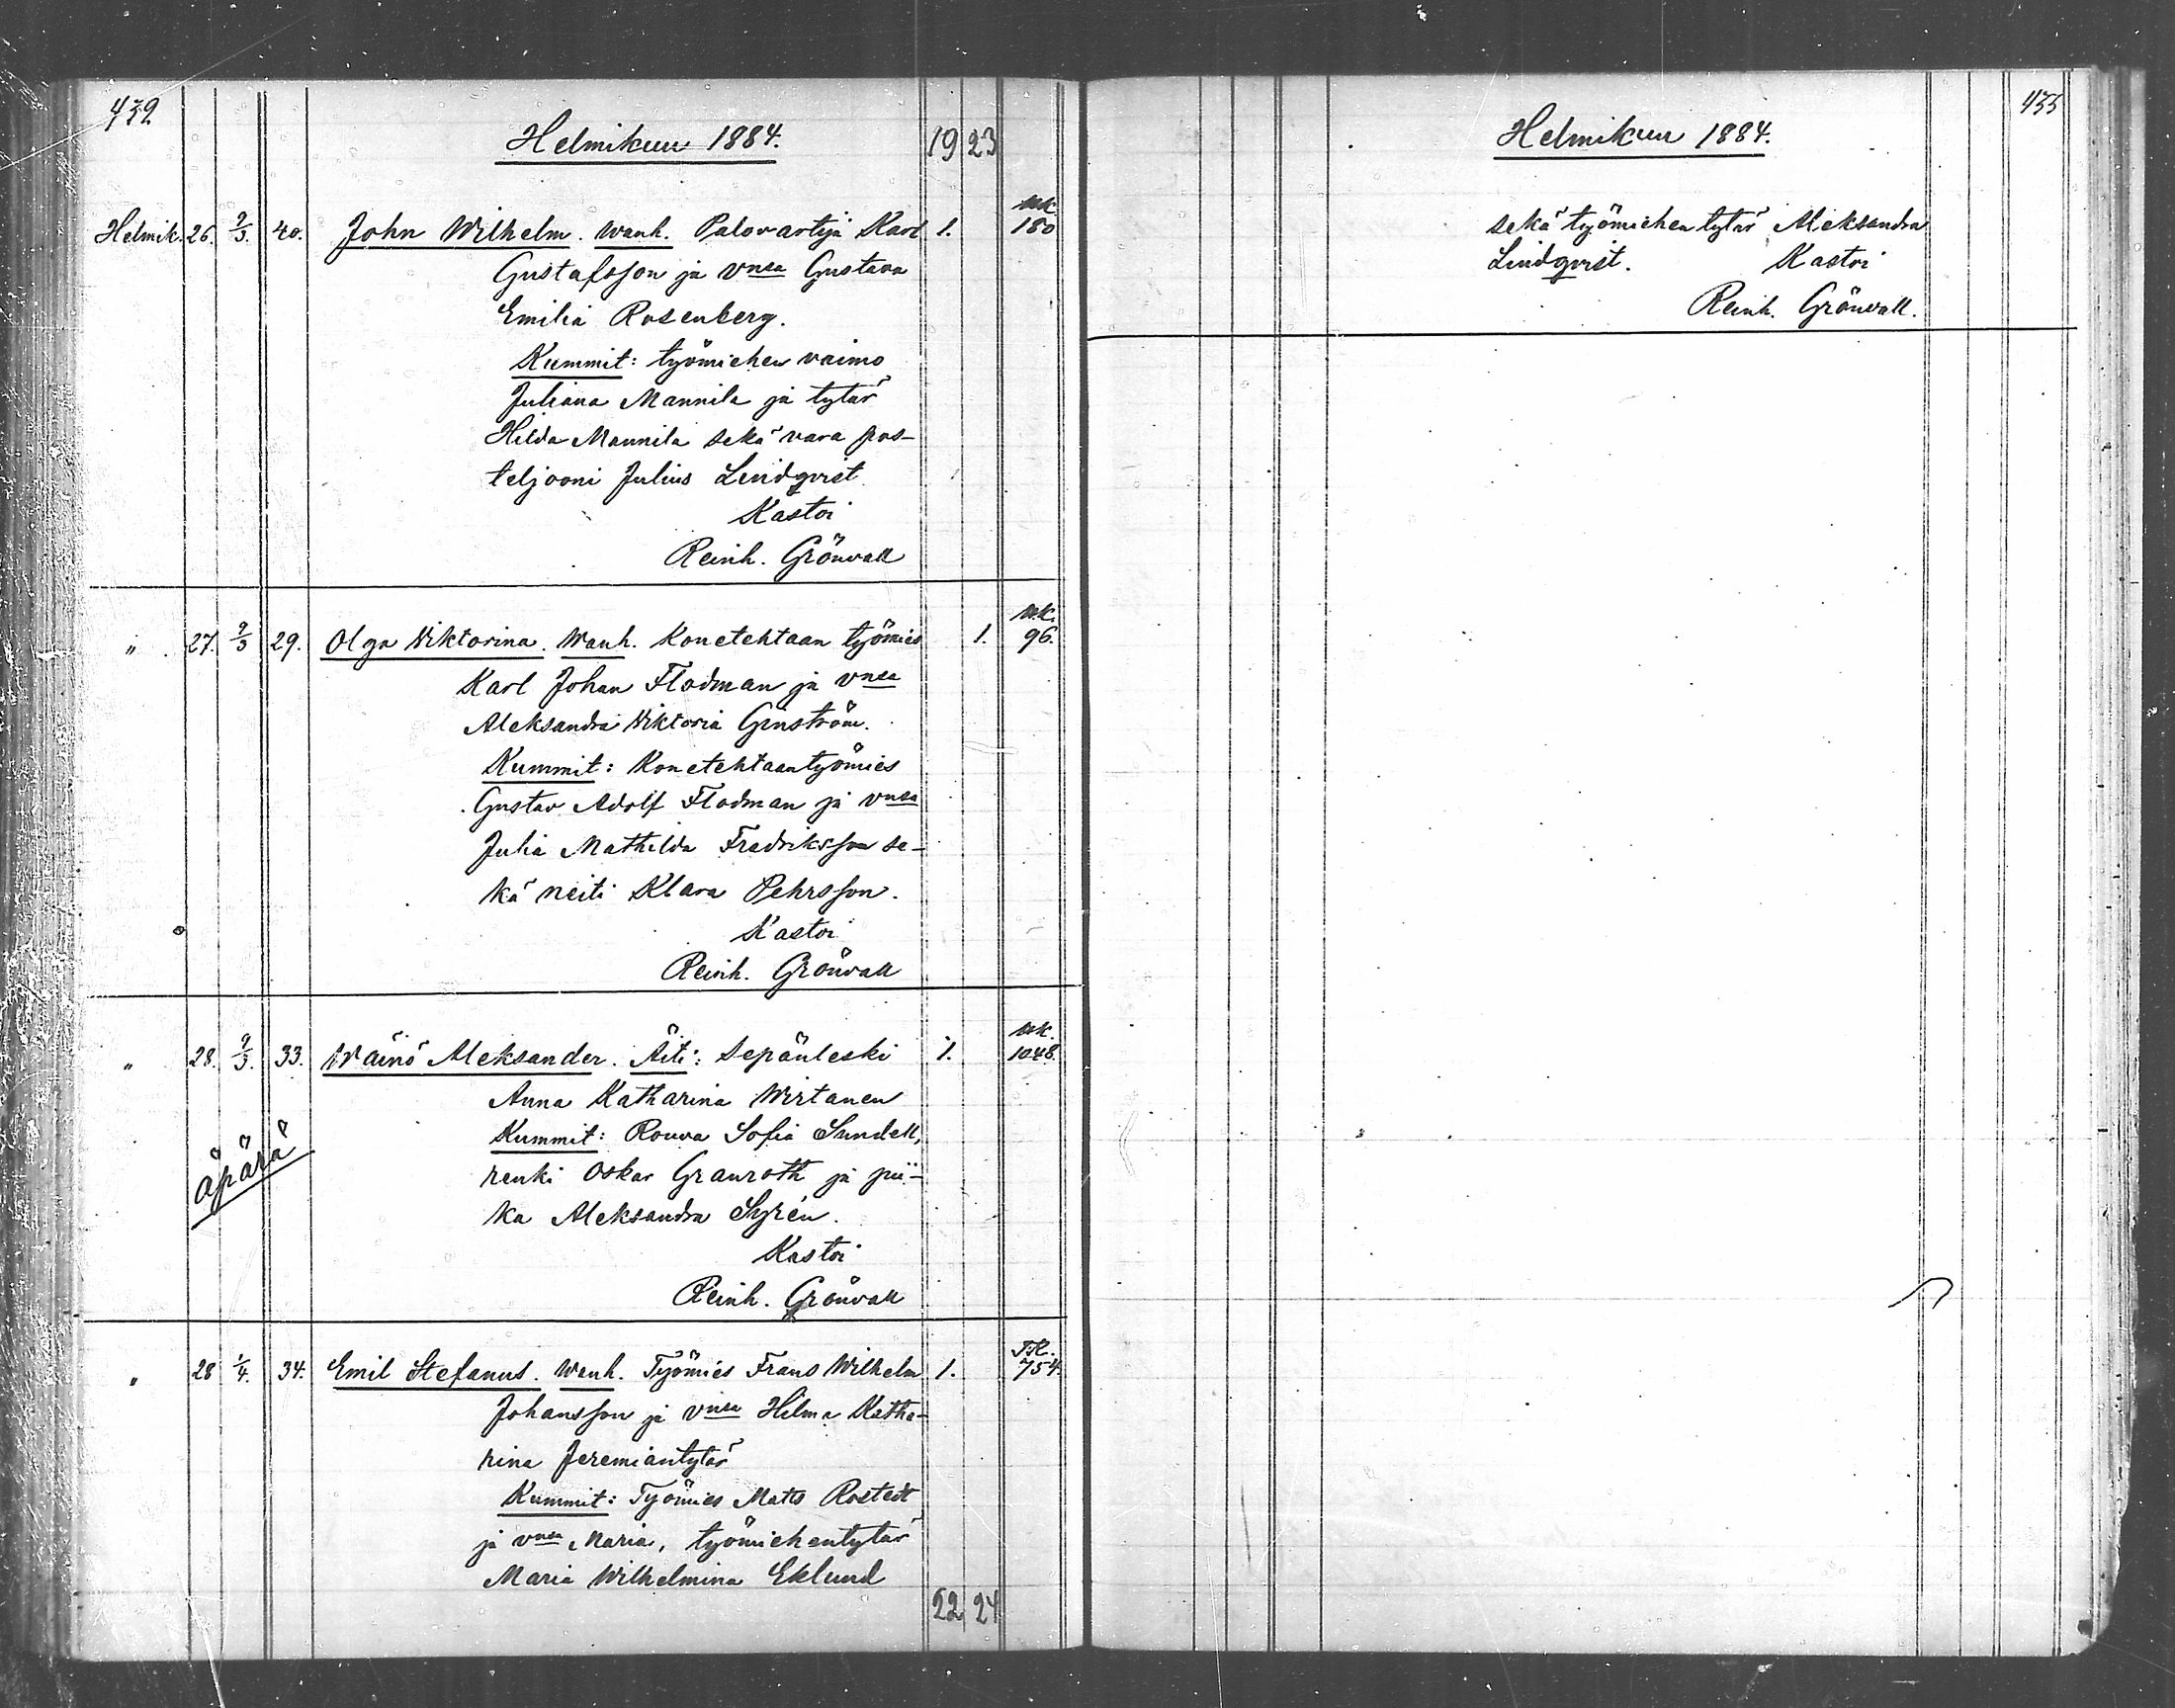 432
Helmikuu 1884.
19 23
Helmik. 26. 9/3. 40. John Wilhelm. Wanh. Palovartija Karl 1. Mk. 180
Gustafsson ja vnsa Gustava
Emilia Rosenberg.
Kummit: työmiehen vaimo
Juliana Mannila ja tytär
Hilda Mannila sekä vara pos-
teljooni Julius Lindqvist
Kastoi
Reinh. Grönvall
" 27. 9/3 29. Olga Wiktorina. Wanh. Konetehtaan työmies 1. Mk. 96.
Karl Johan Flodman ja vnsa
Aleksandra Wiktoria Grnström.
Kummit: Konetehtaantyömies
Gustav Adolf Flodman ja vnsa
Julia Mathilda Fredriksson se-
kä neiti Klara Pehrsson.
Kastoi
Reinh. Grönvall
" 28. 9/3. 33. Wäinö Aleksander. Äiti: Sepänleski 1. Mk. 1048.
Anna Katharina Wirtanen
Kummit: Rouva Sofia Sundell,
renki Oskar Granroth ja pii-
ka Aleksandra Syrén.
äpärä
Kastoi
Reinh. Grönvall
" 28 1/4. 34. Emil Stefanus. Wanh. Työmies Frans Wilhelm 1. 754.
Johansson ja vnsa Hilma Katha-
rina Jeremiantytär
Kummit: Työmies Matts Rostedt
ja vnsa Maria, työmiehentytär
Maria Wilhelmina Eklund
22 24
433
Helmikuu 1884.
sekä työmiehen tytär Aleksandra
Lindqvist. Kastoi
Reinh. Grönvall.